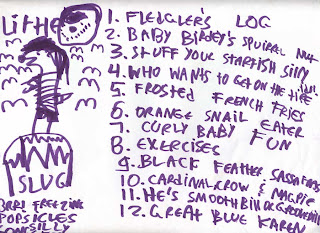 LITHE
1. FLEDGLER'S LOG
2. BABY BIRDEY'S SQUIRAL NUT
3. STUFF YOUR STARFISH SILLY
4. WHO WANTS TO GET ON THE TIRE
5. FROSTED FRENCH FRIES
6. ORANGE SNAIL EATER
7. CURLY BABY FUN
8. EXERCISES
9. BLACK FEATHER SASSAFRAS
10. CARDINAL CROW & MAGPIE
11. HE'S SMOOTH BILL OR GROOVE BILL
12. GREAT BLUE KAREN
SLUG
BRR! FREEZING
POPSICLES
GONE SILLY